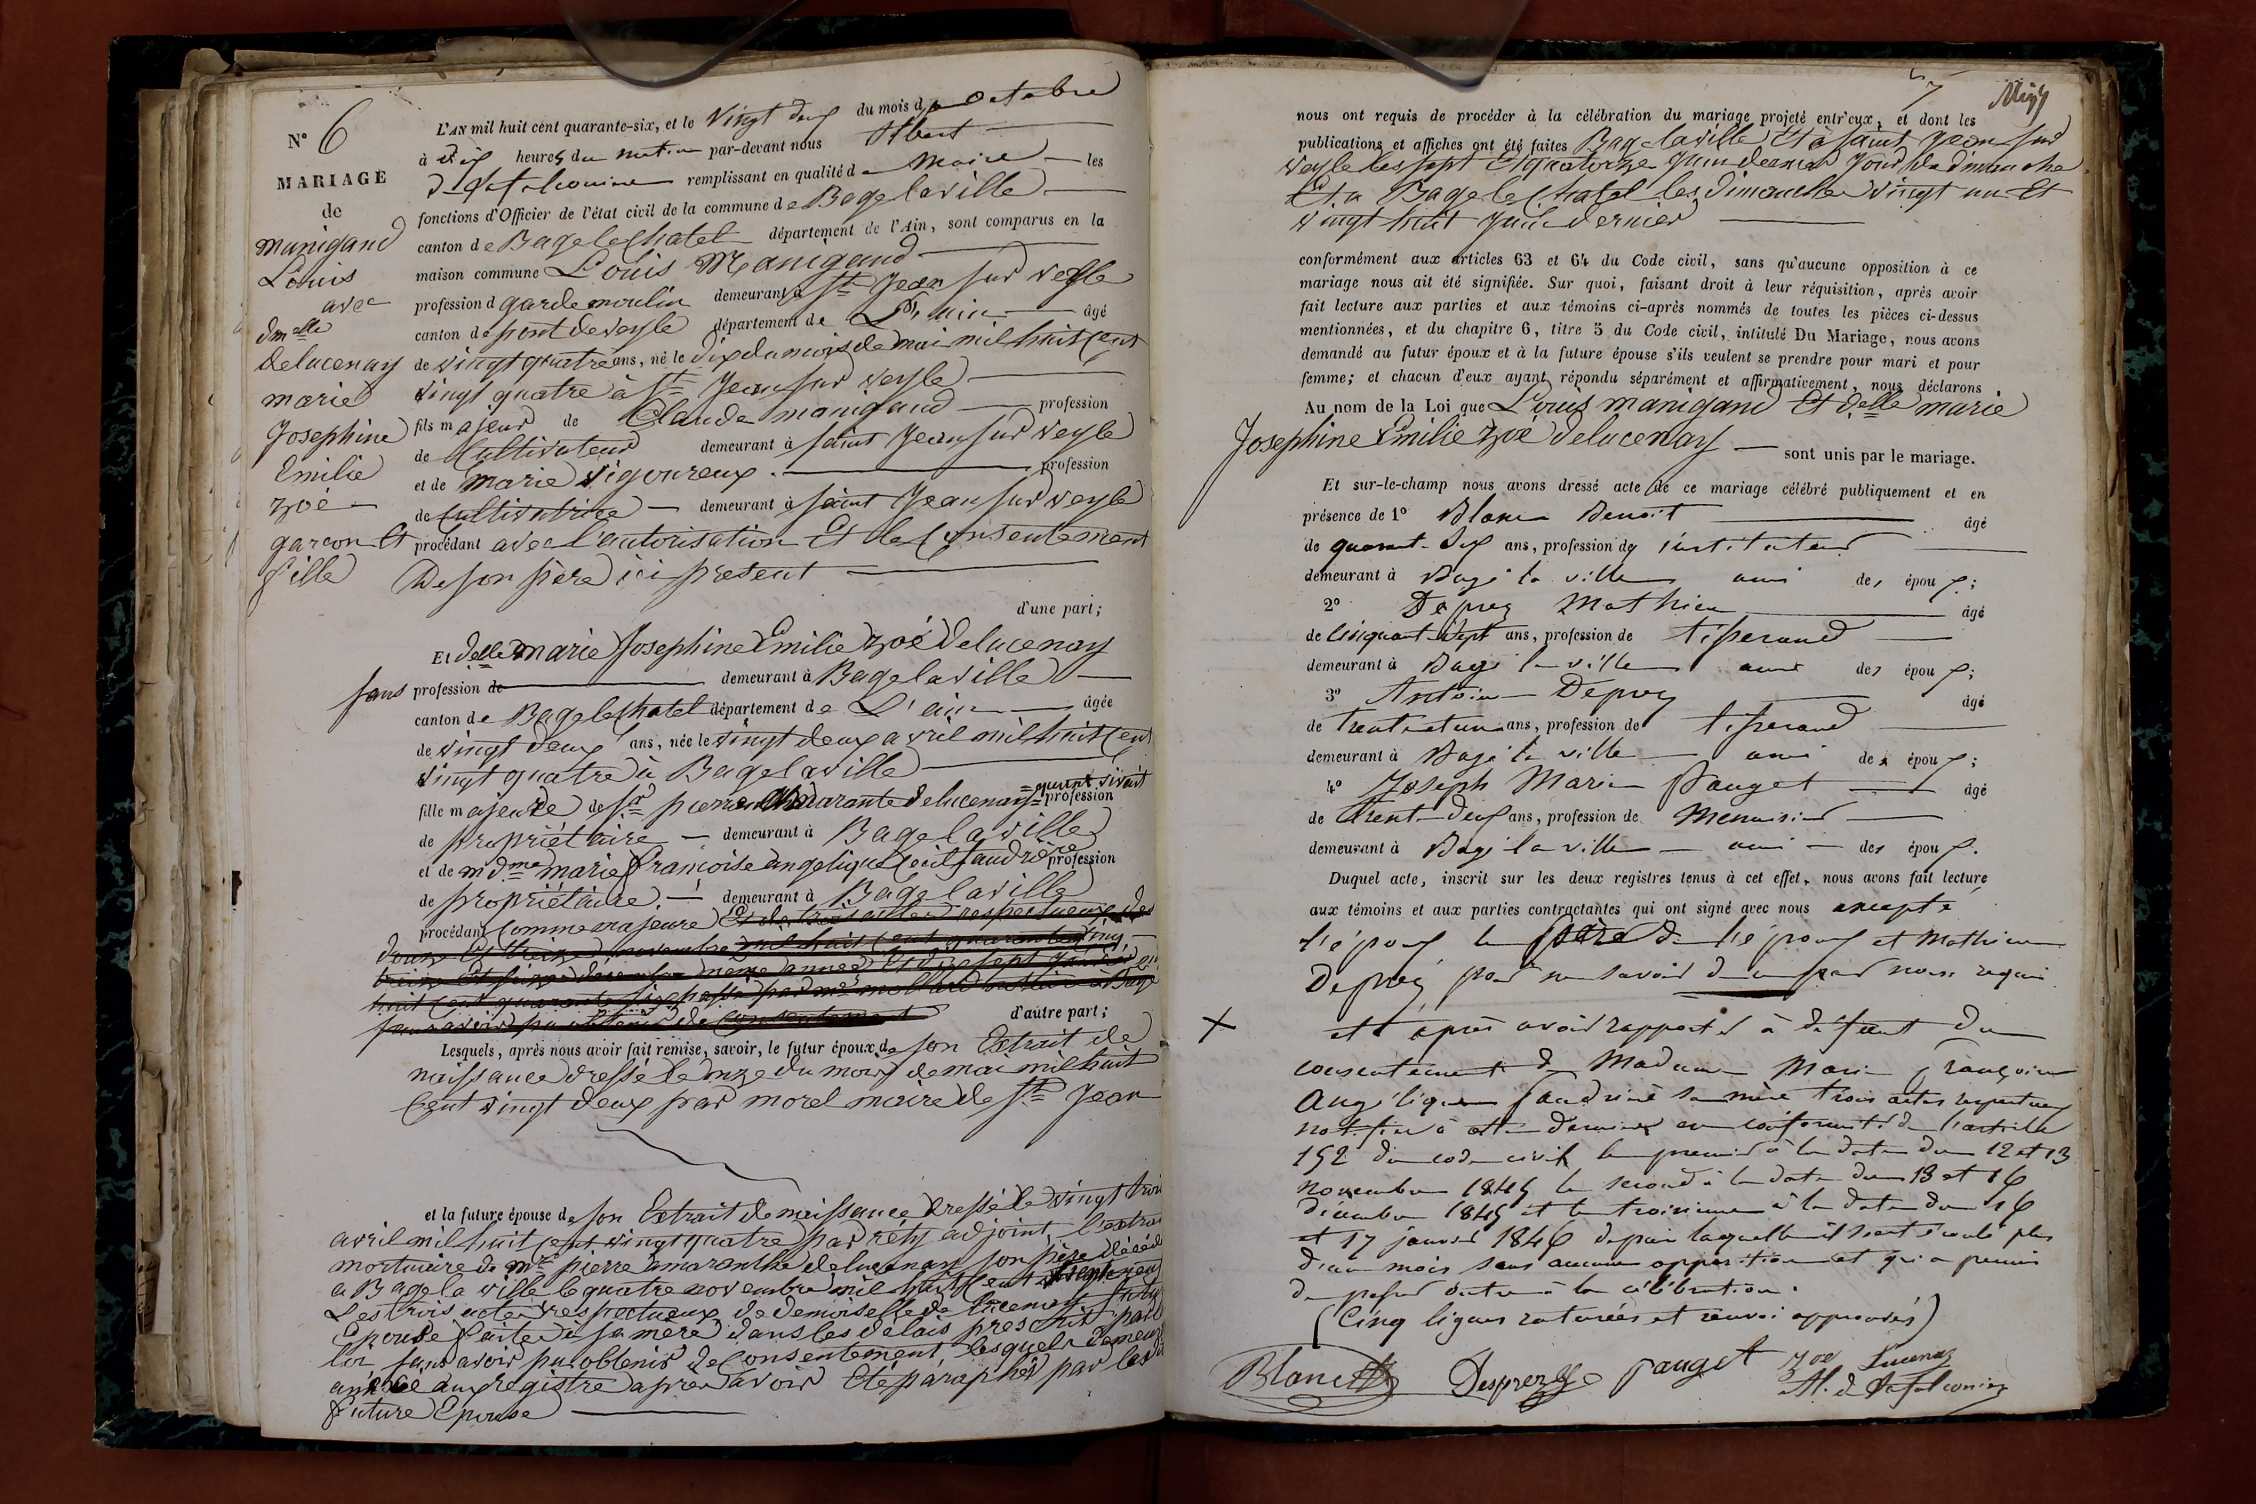 N° 6
MARIAGE
de
Manigand
Louis
avec
dmelle
delucenay
marie
Josephine
Emilie
zoé
garcon et
fille
L'AN mil huit cent quarante-six, et le vingt deux du mois d octobre
à dix heures du matin par-devant nous Albert
d remplissant en qualité de Maire les
fonctions d'Officier de l'état civil de la commune de Bagelaville
canton de Bagelechatel département de l'Ain, sont comparus en la
maison commune Louis Manigand
profession d garde moulin demeurant à St Jean sur veyle
canton de pont de veyle département de L'ain âgé
de vingt quatre ans, né le dix du mois de mai mil huit cent
vingt quatre à St Jean sur veyle
fils majeur de Claude manigand profession
de Cultivateur demeurant à saint Jean sur veyle
et de marie vigoureux profession
de Cultivatrice demeurant à saint Jean sur veyle
procédant avec l'autorisation Et le Consentement
De son père ici present
d'une part;
Et delle marie Josephine Emilie zoé Delucenay
sans profession de demeurant à Bagelaville
canton de Bagelechatel département de L'ain âgée
de vingt deux ans, née le vingt deux avril mil huit cent
vingt quatre à Bagelaville
fille majeure de sr pierre amarante delucenay profession
de propriétaire demeurant à Bagelaville
et de mdme marie francoise angelique profession
de propriétaire demeurant à Bagelaville
procédant Comme majeure Et de trois actes respectueux des
douze Et treize novembre mil huit cent quarante cinq
treize Et seize decembre même année Et dix sept janvier
huit cent quarante six passé par me
sans avoir pu obtenir de Consentement
d'autre part;
Lesquels, après nous avoir fait remise, savoir, le futur époux de son Extrait de
naissance dressé le onze du mois de mai mil huit
Cent vingt deux par morel maire de St Jean
et la future épouse de son Extrait de naissance dressé le vingt trois
avril mil huit cent vingt quatre par réty adjoint, l'extrait
mortuaire de mr pierre amaranthe delucenay son père décédé
a Bagelaville le quatre novembre mil huit Cent
Les trois actes respectueux de demoiselle de lucenay future
Epouse faite à sa mère dans les délais prescrit par la
loi sans avoir pu obtenir de consentement lesquels demeure
annexé aux registre après avoir été paraphés par les
future Epouse
7
nous ont requis de procéder à la célébration du mariage projeté entr'eux, et dont les
publications et affiches ont été faites Bagelaville Et à saint Jean sur
veyle les sept Et quatorze juin dernier jour de dimanche
Et a Bagelechatel les Dimanche vingt un Et
vingt huit juin dernier
conformément aux articles 63 et 64 du Code civil, sans qu'aucune opposition à ce
mariage nous ait été signifiée. Sur quoi, faisant droit à leur réquisition, après avoir
fait lecture aux parties et aux témoins ci-après nommés de toutes les pièces ci-dessus
mentionnées, et du chapitre 6, titre 5 du Code civil, intitulé Du Mariage, nous avons
demandé au futur époux et à la future épouse s'ils veulent se prendre pour mari et pour
femme; et chacun d'eux ayant répondu séparément et affirmativement, nous déclarons
Au nom de la Loi que Louis manigand Et delle marie
Josephine Emilie zoé delucenay sont unis par le mariage.
Et sur-le-champ nous avons dressé acte de ce mariage célébré publiquement et en
présence de 1° Blanc Benoit âgé
de quarant-six ans, profession d'instituteur
demeurant à Bagé la ville ami des époux;
2° Deprez Mathieu âgé
de Cinquant-sept ans, profession de tisserand
demeurant à Bagé la ville ami des époux;
3° Antoine Deprez âgé
de trente-un ans, profession de tisserand
demeurant à Bagé la ville ami des époux;
4° Joseph Marie Pauget âgé
de trent-deux ans, profession de Menuisier
demeurant à Bagé la ville ami des époux.
Duquel acte, inscrit sur les deux registres tenus à cet effet, nous avons fait lecture
aux témoins et aux parties contractantes qui ont signé avec nous excepté
l'époux le père de l'époux et Mathieu
Deprez pour ne savoir de ce par nous requis
+ et après avoir rapporté à défaut du
consentement de Madame Marie françoise
Angélique sa mère trois actes respectueux
notifiés à cette dernière en conformité de l'article
152 du code civil le premier à la date du 12 et 13
novembre 1845 le second à la date du 13 et 16
décembre 1845 et le troisième à la date du 16
et 17 janvier 1846 depuis laquelle il s'est écoulé plus
d'un mois sans aucune opposition et qui a permis
de passer outre à la célébration.
(Cinq lignes raturées et renvoi approuvés)
Blanc Desprez pauget zoé Lucenay